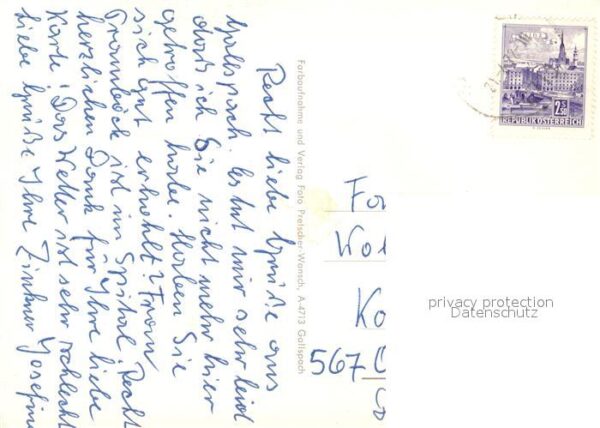 Recht liebe Grüße aus
Gallspach. Es tut mir sehr leid
daß ich Sie nicht mehr hier
getroffen habe. Haben Sie
sich gut erhohlt? Frau
ist im Spital. Recht
herzlichen Dank für Ihre liebe
Karte. Das Wetter ist sehr schlecht
Liebe Grüße Ihre Zinkner Josefine
Farbaufnahme und Verlag Foto Pretscher-Wansch, A-4713 Gallspach
2.50
REPUBLIK ÖSTERREICH
Ko
567
privacy protection
Datenschutz